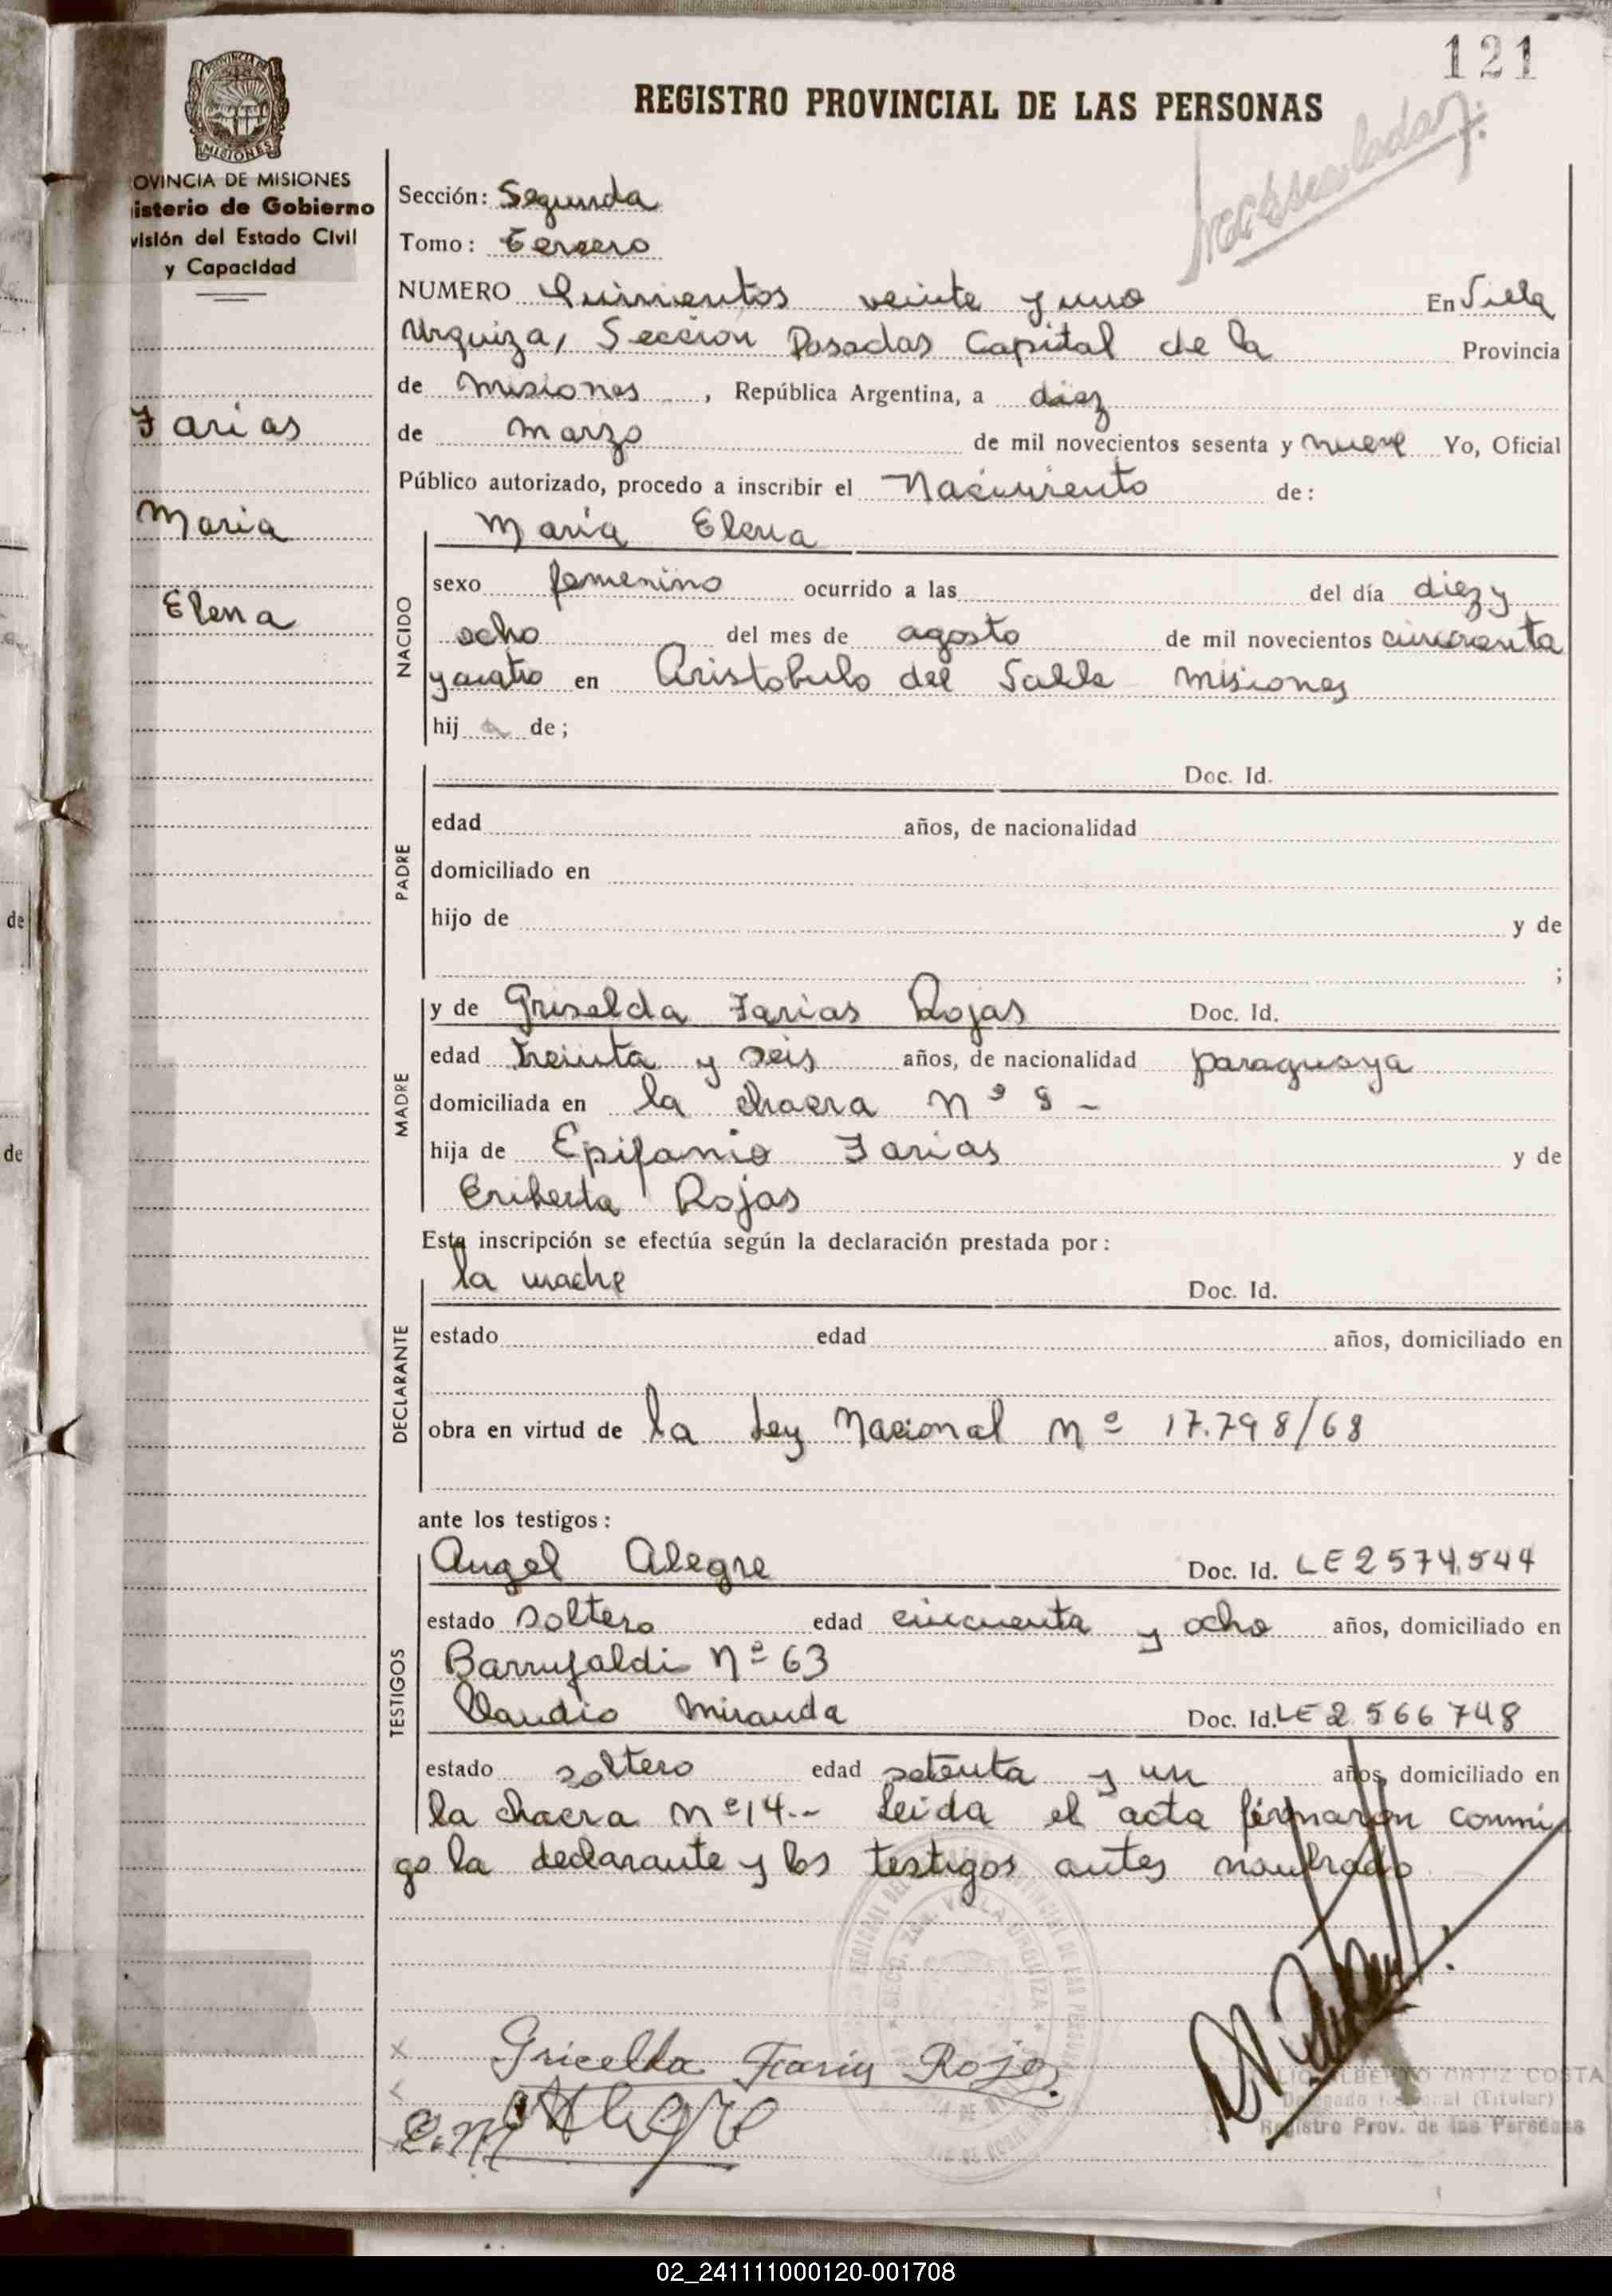 121
REGISTRO PROVINCIAL DE LAS PERSONAS
MISIONES
OVINCIA DE MISIONES
isterio de Gobierno
visión del Estado Civil
y Capacidad
Farias
Maria
Elena
Sección: Segunda
Tomo: Tercero
NUMERO Quinientos veinte y uno En Villa
Urquiza, Sección Posadas Capital de la Provincia
de Misiones, República Argentina, a diez
de Marzo de mil novecientos sesenta y nueve Yo, Oficial
Público autorizado, procedo a inscribir el Nacimiento de:
NACIDO
María Elena
sexo femenino ocurrido a las del día diez y
ocho del mes de agosto de mil novecientos cincuenta
y cuatro en Aristobulo del Valle Misiones
hij a de;
PADRE
Doc. Id.
edad años, de nacionalidad
domiciliado en
hijo de y de
;
MADRE
y de Griselda Farias Rojas Doc. Id.
edad treinta y seis años, de nacionalidad paraguaya
domiciliada en la chacra Nº 8 -
hija de Epifanio Farias y de
Eriberta Rojas
Esta inscripción se efectúa según la declaración prestada por:
DECLARANTE
la madre Doc. Id.
estado edad años, domiciliado en
obra en virtud de la Ley Nacional Nº 17.798/68
ante los testigos:
TESTIGOS
Angel Alegre Doc. Id. LE 2574.544
estado soltero edad cincuenta y ocho años, domiciliado en
Barrufaldi Nº 63
Claudio Miranda Doc. Id. LE 2566748
estado soltero edad setenta y un años, domiciliado en
la chacra Nº 14.- Leida el acta firmaron conmi
go la declarante y los testigos antes nombrado
SECC. 2da. VILLA URQUIZA
Gricelda Farias Rojas
C.M
ALBERTO ORTIZ COSTA
(Titular)
Registro Prov. de las Personas
de
de
02_241111000120-001708